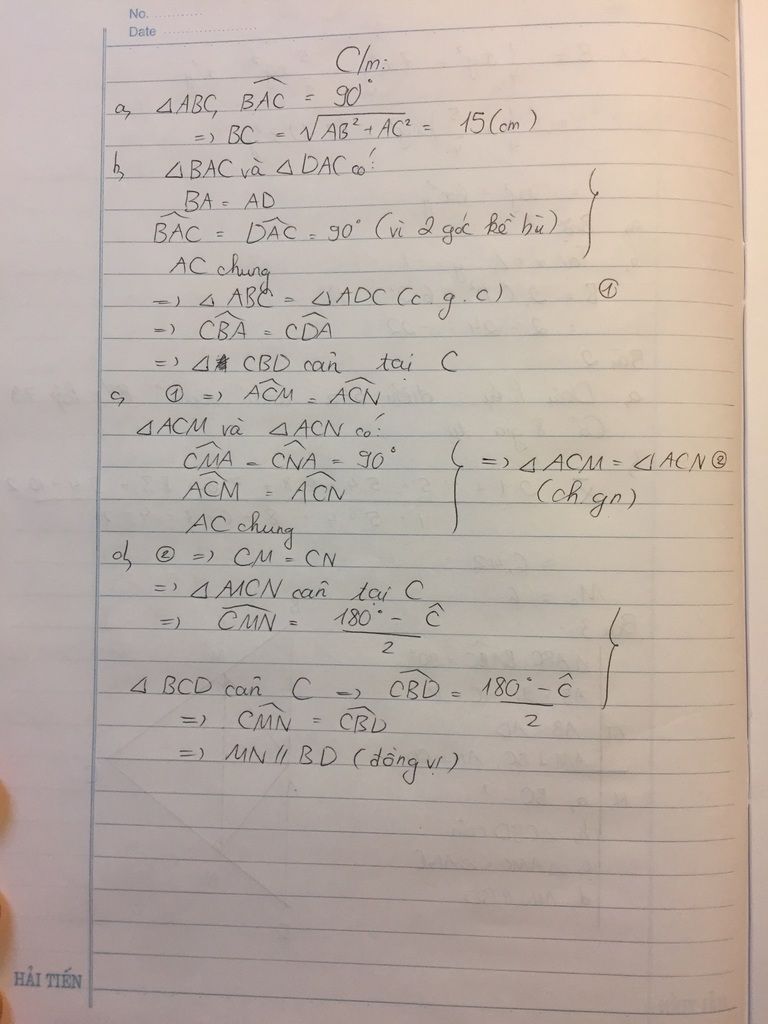 No. ............
Date ..................
C/m:
a, △ABC, \widehat{BAC} = 90°
=> BC = √(AB² + AC²) = 15 (cm)
b, △BAC và △DAC có:
BA = AD
\widehat{BAC} = \widehat{DAC} = 90° (vì 2 góc kề bù)
AC chung
=> △ABC = △ADC (c.g.c) ①
=> \widehat{CBA} = \widehat{CDA}
=> △ CBD cân tại C
c, ① => \widehat{ACM} = \widehat{ACN}
△ACM và △ACN có:
\widehat{CMA} = \widehat{CNA} = 90° => △ACM = △ACN ②
\widehat{ACM} = \widehat{ACN} (ch.gn)
AC chung
d, ② => CM = CN
=> △MCN cân tại C
=> \widehat{CMN} = (180° - Ĉ)/2
△BCD cân C => \widehat{CBD} = (180° - Ĉ)/2
=> \widehat{CMN} = \widehat{CBD}
=> MN // BD (đồng vị)
HẢI TIẾN